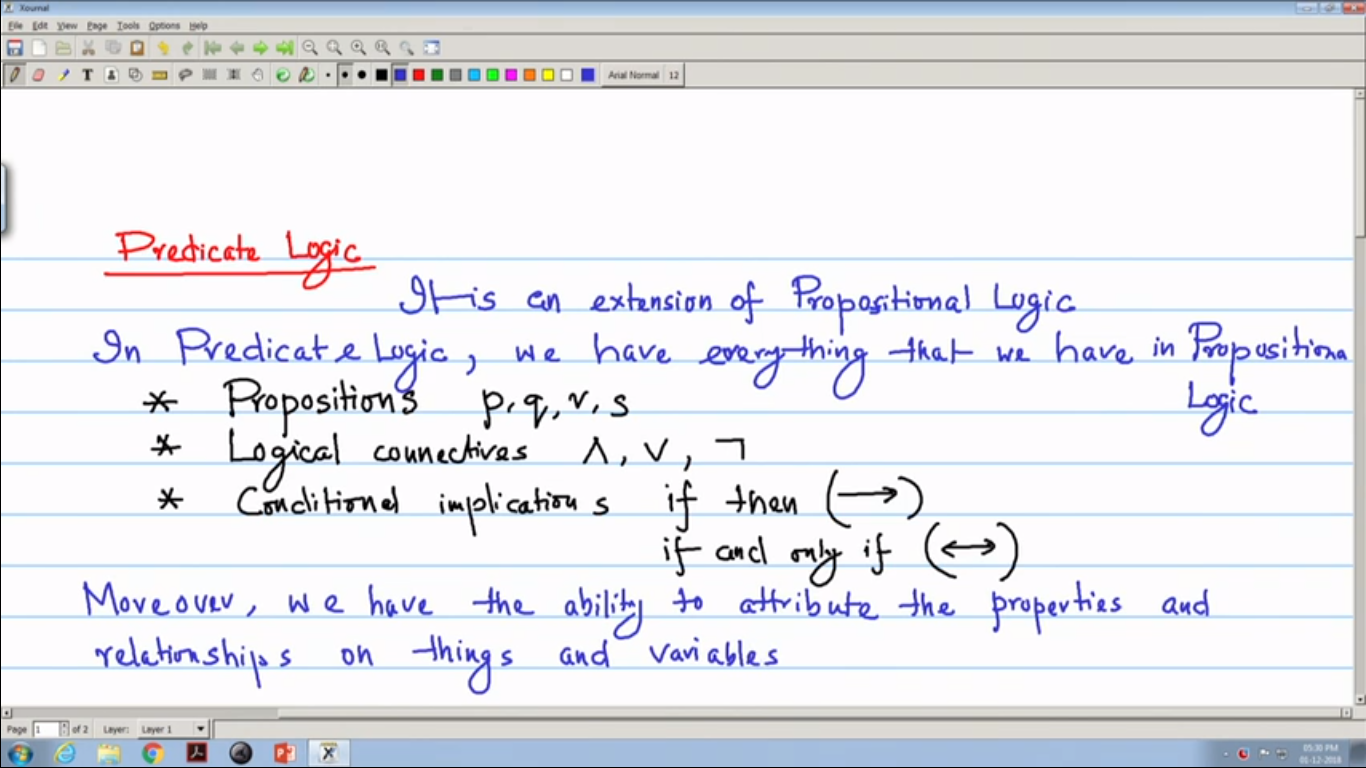 Xournal
File Edit View Page Tools Options Help
Arial Normal 12
Predicate Logic
It is an extension of Propositional Logic
In Predicate Logic, we have everything that we have in Propositiona
Logic
* Propositions p, q, r, s
* Logical connectives ∧, ∨, ¬
* Conditional implications if then (→)
if and only if (↔)
Moreover, we have the ability to attribute the properties and
relationships on things and variables
Page 1 of 2 Layer: Layer 1
05:30 PM
01-12-2018